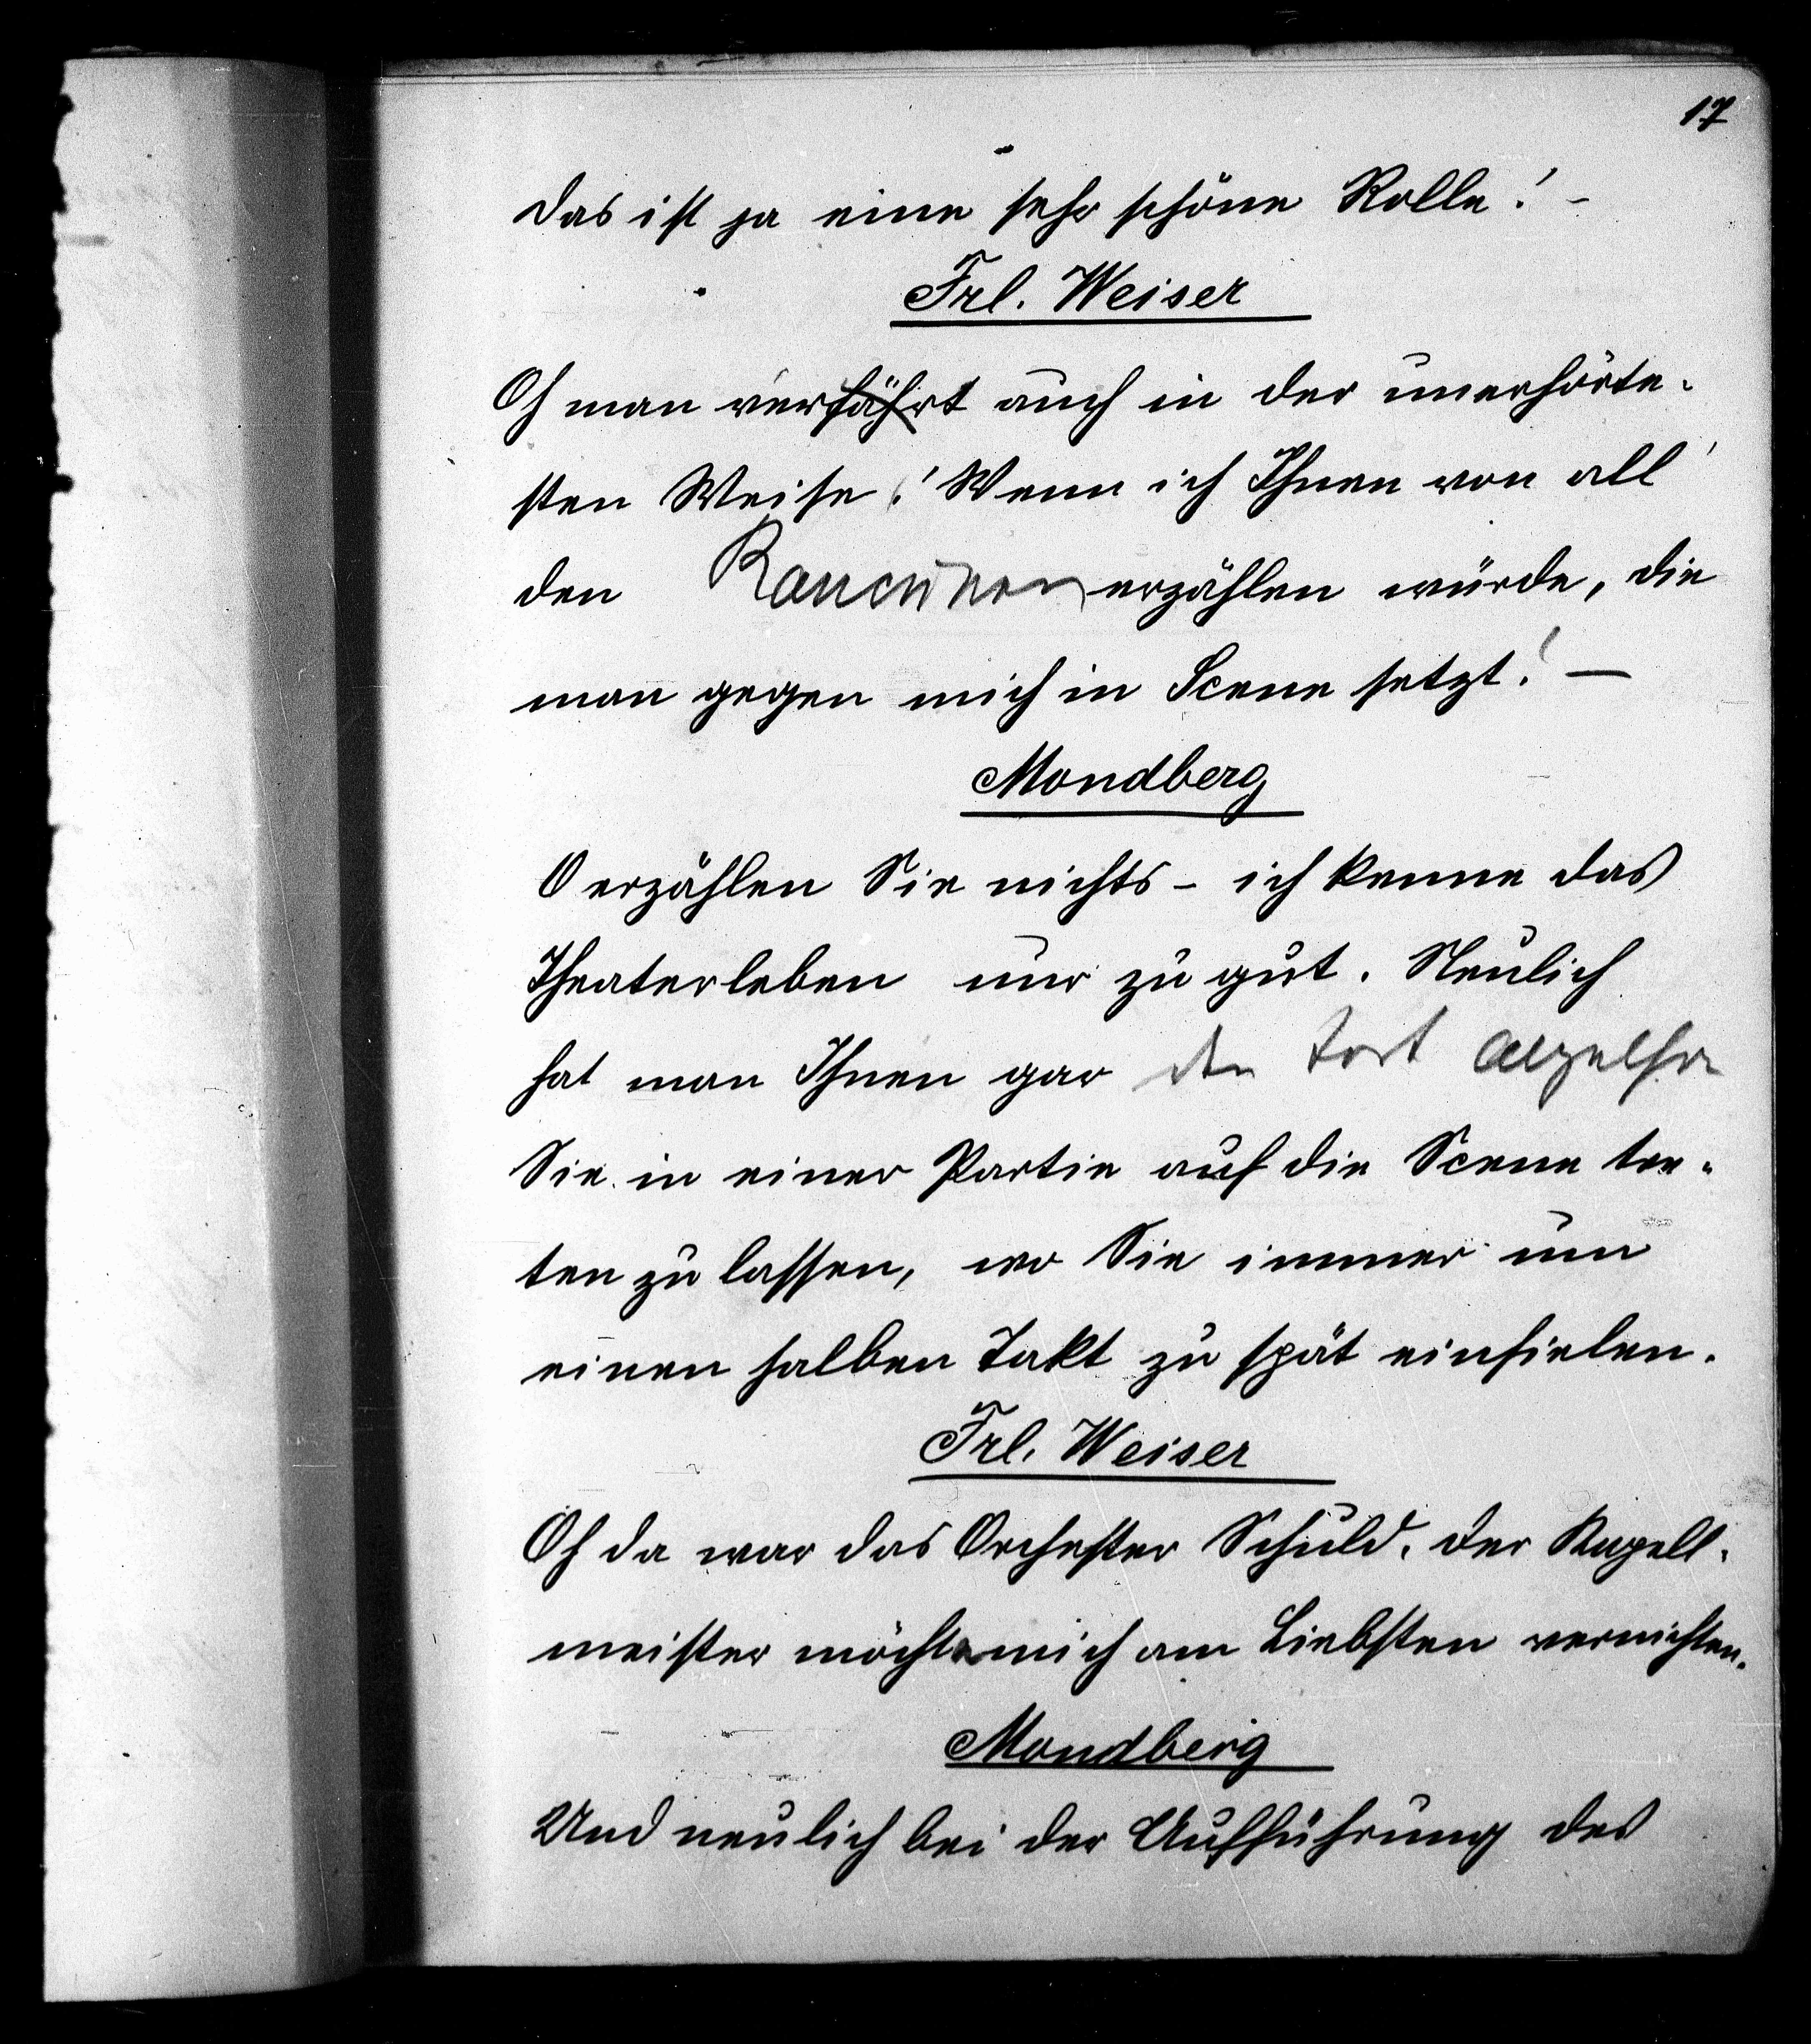 17
Das ist ja eine sehr schöne Rolle! –
Frl. Weiser
Oh man verfährt auch in der unerhörte-
sten Weise! Wenn ich Ihnen von all'
den Rancünen erzählen würde, die
man gegen mich in Scene setzt! —
Mondberg
O erzählen Sie nichts – ich kenne das
Theaterleben nur zu gut. Neulich
hat man Ihnen gar den Tort
Sie in einer Partie auf die Scene tre-
ten zu lassen, wo Sie immer um
einen halben Takt zu spät einfielen.
Frl. Weiser
Oh da war das Orchester Schuld. Der Kapell-
meister möchte mich am Liebsten vernichten.
Mondberg
Und neulich bei der Aufführung des